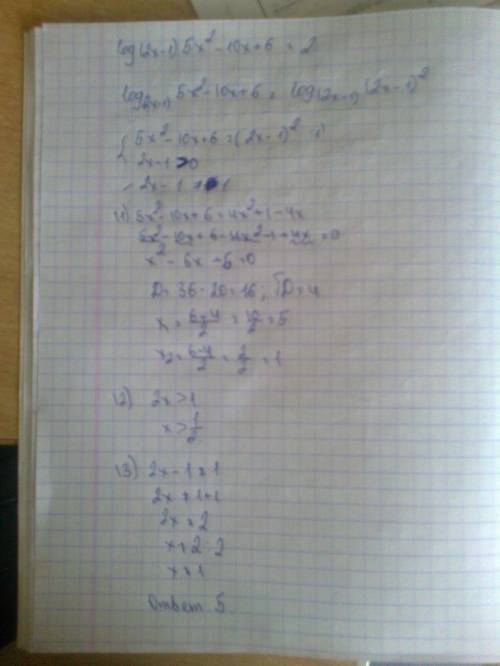 log(2x-1) 5x²-10x+6 = 2
log(2x-1) 5x²-10x+6 = log(2x-1) (2x-1)²
{ 5x²-10x+6=(2x-1)² 1)
2x-1>0
2x-1≠1
1) 5x²-10x+6=4x²+1-4x
5x²-10x+6-4x²-1+4x=0
x²-6x+5=0
D=36-20=16; √D=4
x₁=(6+4)/2=10/2=5
x₂=(6-4)/2=2/2=1
2) 2x>1
x>1/2
3) 2x-1≠1
2x≠1+1
2x≠2
x≠2:2
x≠1
Ответ 5.